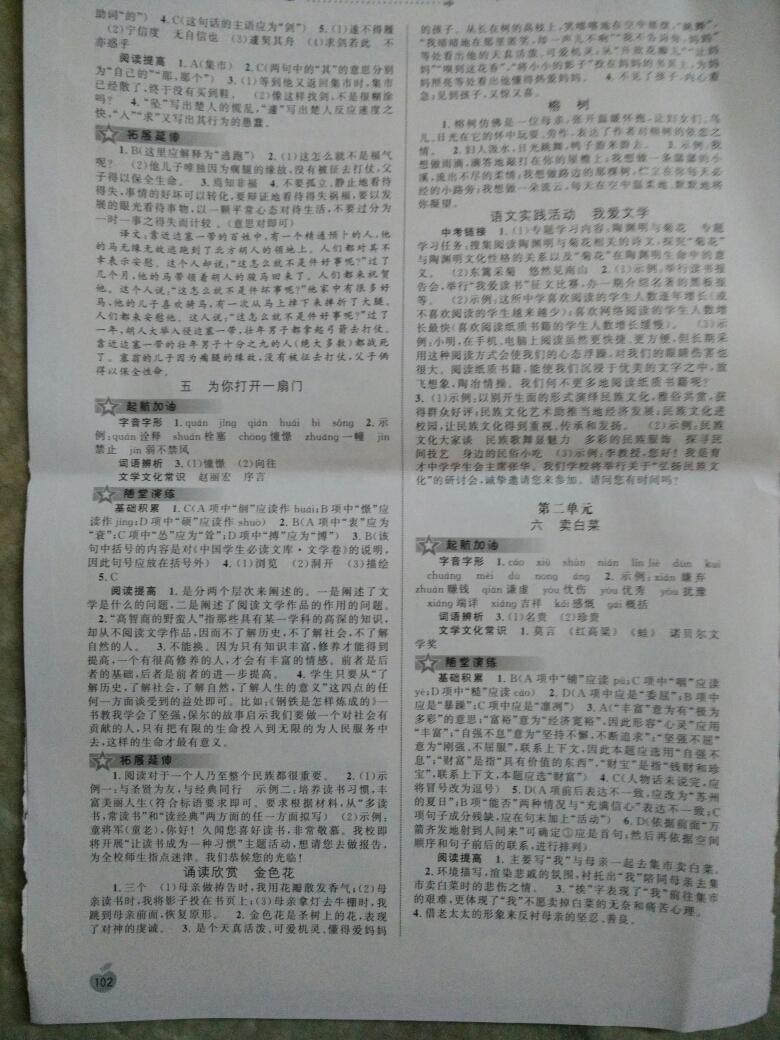 助词“的”) 4.C(这句话的主语应为“剑”) 5.(1)遂不得履
(2)宁信度 无自信也 (3)遽契其舟 (4)求剑若此 不
亦惑乎
阅读提高 1.A(集市) C(两句中的“其”的意思分别
为“自己的”“那,那个”) 3.(1)等到他又返回集市时,集市
已经散了,终于没有买到鞋。 (2)像这样找剑,不是很糊涂
吗? 4.“坠”写出楚人的慌乱,“遽”写出楚人反应速度之
快,“人”“求”又写出其行为的愚蠢。
拓展延伸
1.B(这里应解释为“逃跑”) 2.(1)这怎么就不是福气
呢? (2)他儿子唯独因为瘸腿的缘故,没有被征去打仗,父
子得以保全生命。 3.焉知非福 4.不要孤立、静止地看待
得失,事情的好坏可以转化,要辩证地看待得失祸福,要以发
展的眼光看待事物,以一颗平常心态对待生活,不要过分为
一时一事之得失而计较。(意思对即可)
译文:靠近边塞一带的百姓中,有一个精通卜的人,他
的马无缘无故逃跑到了北方胡人的领地上。人们都对其不
幸表示安慰。这个人却说:“这怎么就不是件好事呢?”过了
几个月,他的马带领着胡人的骏马回来了。人们都来祝贺
他。这个人说:“这怎么就不是件坏事呢?”他家中有很多好
马,他的儿子喜欢骑马,有一次从马上摔下来摔折了大腿。
人们都来安慰他。这人说:“这怎么就不是件好事呢?”过了
一年,胡人大举入侵边塞一带,壮年男子都拿起弓箭去打仗。
靠近边塞一带的壮年男子十分之九的人(绝大多数)都战死
了。塞翁的儿子因为瘸腿的缘故,没有被征去打仗,父子俩
得以保全性命。
五 为你打开一扇门
起航加油
字音字形 1.quán jīng qián huái bì sǒng 2.示
例:quán诠释 shuān栓塞 chōng憧憬 zhuàng一幢 jìn
禁止 jīn弱不禁风
词语辨析 3.(1)憧憬 (2)向往
文学文化常识 赵丽宏 序言
随堂演练
基础积累 1.C(A项中“徊”应读作huái;B项中“憬”应
读作jǐng;D项中“硕”应读作shuò) 2.B(A项中“衷”应为
“衰”;C项中“怂”应为“诠”;D项中“搏”应为“博”) 3.B(该
句中括号的内容是对《中国学生必读文库·文学卷》的说明,
因此句号应放在括号外) 4.(1)浏览 (2)洞开 (3)描绘
5.C
阅读提高 1.是分两个层次来阐述的。一是阐述了文
学是什么的问题,二是阐述了阅读文学作品的作用的问题。
2.“高智商的野蛮人”指那些具有某一学科的高深的知识,
却从不阅读文学作品,因而不了解历史,不了解社会,不了解
自然的人。 3.不能换。因为只有知识丰富,修养才能得到
提高,一个有很高修养的人,才会有丰富的情感。前者是后
者的基础,后者是前者的进一步提高。 4.学生只要从“了
解历史,了解社会,了解自然,了解人生的意义”这四点的任
何一方面谈受到的益处即可。比如:《钢铁是怎样炼成的》一
书教我学会了坚强,保尔的故事启示我们要做一个对社会有
贡献的人,只有把有限的生命投入到无限的为人民服务中
去,这样的生命才最有意义。
拓展延伸
1.阅读对于一个人乃至整个民族都很重要。 2.(1)示
例一:与圣贤为友,与经典同行 示例二:培养读书习惯,丰
富美丽人生(符合标语要求即可。要求根据材料,从“多读
书,常读书”和“读经典”两方面的任一方面拟写) (2)示例:
童将军(童老),你好!久闻您喜好读书,非常敬慕。我校即
将开展“让读书成为一种习惯”主题活动,想请您去做报告,
为全校师生指点迷津。我们恭候您的光临!
诵读欣赏 金色花
1.三个 (1)母亲做祷告时,我用花瓣散发香气;(2)母
亲读书时,我将影子投在书页上;(3)母亲拿灯去牛棚时,我
跳到母亲前面,恢复原形。 2.金色花是圣树上的花,表现
了对神的虔诚。 3.是个天真活泼、可爱机灵、懂得爱妈妈
102
的孩子。从长在树的高枝上,笑嘻嘻地在空中摇摆,“跳舞”,
等处看出他的天真活泼,可爱机灵;从“开放花瓣儿”“让妈
妈”“嗅到这花香”,“将小小的影子”投在妈妈的书页上,为妈
妈照亮等处看出他懂得热爱妈妈。 4.不见了孩子,内心着
急;见到孩子,又惊又喜。
榕树
1.榕树仿佛是一位母亲,张开温暖怀抱,让妇女们、鸟
儿、日光在它的怀中玩耍、劳作,表达了作者对榕树的依恋之
情。 2.妇人汲水,日光跳舞,鸭子游来游去。 3.示例:我
想做雨滴,滴答地敲打在你的屋檐上;我想做一条潺潺的小
溪,流出不尽的柔情;我想做路边的那棵树,伫立在你每天必
经的小路旁;我想做一朵流云,每天在空中温柔地、默默地将
你凝望。
语文实践活动 我爱文学
中考链接 1.(1)专题学习内容:陶渊明与菊花 专题
学习任务:搜集阅读陶渊明与菊花相关的诗文,探究“菊花”
与陶渊明文化性格的关系以及“菊花”在陶渊明生命中的意
义。 (2)东篱采菊 悠然见南山 (2)①示例:举行读书报
告会,举行“我爱读书”征文比赛,办一期介绍名著的黑板报
等。 (2)示例:这所中学喜欢阅读的学生人数逐年增长(或
不喜欢阅读的学生越来越少);喜欢网络阅读的学生人数增
长最快(喜欢阅读纸质书籍的学生人数增长缓慢)。 (3)示
例:小明,在手机、电脑上阅读虽然更快捷、更方便,但长期采
用这种阅读方式会使我们的心态浮躁,对我们的眼睛伤害也
很大。阅读纸质书籍,能使我们沉浸于优美的文字之中,放
飞想象,陶冶情操。我们何不更多地阅读纸质书籍呢?
3.(1)示例:以别开生面的形式演绎民族文化,雅俗共赏,获
得群众好评;民族文化艺术助推当地经济发展;民族文化进
校园,让民族文化得到重视,传承和发扬。 (2)示例:民族
文化大家谈 民族歌舞显魅力 多彩的民族服饰 探寻民
间技艺 身边的民俗小吃 (3)示例:李教授,您好!我是育
才中学学生会主席张华。我们学校将举行关于“弘扬民族文
化”的研讨会,诚挚邀请您来参加。请问您有时间吗?
第二单元
六 卖白菜
起航加油
字音字形 1.cáo xiù shùn nián lìn liè dùn kuì
chuáng méi dù nong áng 2.示例:xián嫌弃
zhuàn赚钱 qiān谦虚 yōu忧伤 yōu优秀 yóu犹豫
xiáng端详 xiáng吉祥 kǎi感慨 gài概括
词语辨析 3.(1)名贵 (2)珍贵
文学文化常识 1.莫言 《红高粱》 《蛙》 诺贝尔文
学奖
随堂演练
基础积累 1.B(A项中“铺”应读pù;C项中“咽”应读
yè;D项中“糙”应读cāo) 2.D(A项中应是“委屈”;B项中
应是“暴躁”;C项中应是“凛冽”) 3.A(“丰富”意为有“极为
多彩”的意思;“富裕”意为“经济宽裕”,因此形容“心灵”应用
“丰富”;“自强不息”意为“坚持不懈,不断追求”;“坚强不屈”
意为“刚强、不屈服”,联系上下文,因此本题应选用“自强不
息”;“财富”是指“具有价值的东西”,“财宝”是指“钱财和珍
宝”,联系上下文,本题应选“财富”) 4.C(人物话未说完,应
将冒号改为逗号) 5.D(A项前后表达不一致,应改为“苏州
的夏日”;B项“能否”两种情况与“充满信心”表达不一致;C
项句子成分残缺,应在句末加上“活动”) 6.D(依据前面“万
箭齐发地射到人间来”可确定①应是首句;然后再依据空间
顺序和句子前后的联系,进行排列)
阅读提高 1.主要写“我”与母亲一起去集市卖白菜。
2.环境描写,渲染悲戚的氛围,衬托出“我”陪同母亲去集
市卖白菜时的悲伤之情。 3.“挨”字表现了“我”前往集市
的艰难,更体现了“我”不愿卖掉白菜的无奈和痛苦心理。
4.借老太太的形象来反衬母亲的坚忍、善良。